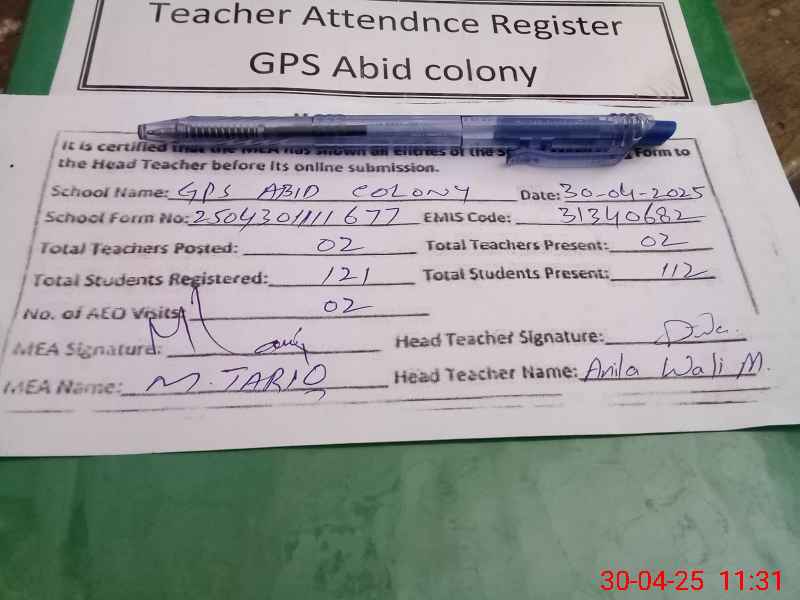 Teacher Attendnce Register
GPS Abid colony
It is certified that the MEA has shown all entries of the Form to
the Head Teacher before its online submission.
School Name: GPS ABID COLONY Date: 30-04-2025
School Form No: 2504301111677 EMIS Code: 31340682
Total Teachers Posted: 02 Total Teachers Present: 02
Total Students Registered: 121 Total Students Present: 112
No. of AEO Visits: 02
MEA Signature: Head Teacher Signature:
MEA Name: M. TARIQ Head Teacher Name: Anila Wali M.
30-04-25 11:31